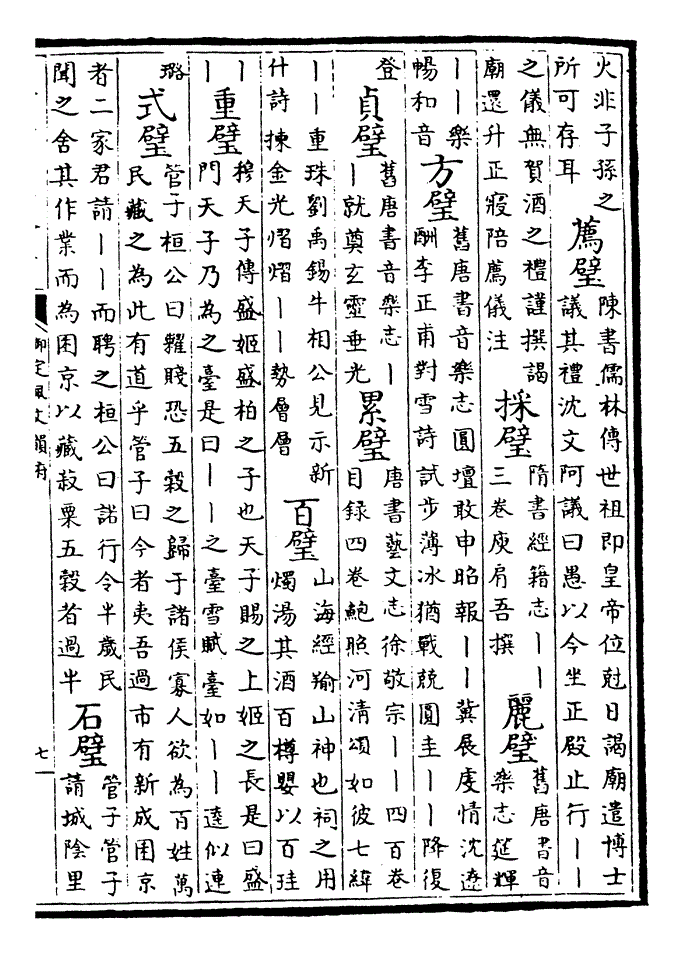 火非子孫之
所可存耳
薦璧
陳書儒林傳世祖即皇帝位尅日謁廟遣博士
議其禮沈文阿議曰愚以今坐正殿止行｜｜
之儀無賀酒之禮謹撰謁
廟還升正寢陪薦儀注
採璧
隋書經籍志｜｜
三卷庾肩吾撰
麗璧
舊唐書音
樂志筵輝
｜｜樂
暢和音
方璧
舊唐書音樂志圓壇敢申昭報｜｜冀展虔情沈遼
酬李正甫對雪詩試步薄冰猶戰兢圓圭｜｜降復
登
貞璧
舊唐書音樂志｜
｜就奠玄靈垂光
累璧
唐書藝文志徐敬宗｜｜四百卷
目録四卷鮑照河清頌如彼七緯
｜｜重珠劉禹錫牛相公見示新
什詩揀金光熠熠｜｜勢層層
百璧
山海經羭山神也祠之用
燭湯其酒百樽嬰以百珪
｜
｜
重璧
穆天子傳盛姬盛柏之子也天子賜之上姬之長是曰盛
門天子乃為之臺是曰｜｜之臺雪賦臺如｜｜逵似連
璐
式璧
管子桓公曰糴賤恐五穀之歸于諸侯寡人欲為百姓萬
民藏之為此有道乎管子曰今者夷吾過市有新成囷京
者二家君請｜｜而聘之桓公曰諾行令半歲民
聞之舍其作業而為囷京以藏菽粟五穀者過半
石璧
管子管子
請城陰里
御定佩文韻府
七